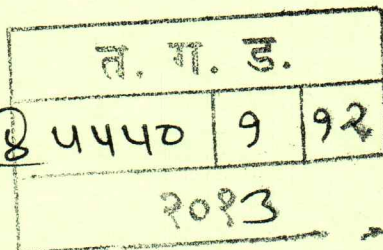 त. ग. ड.
४ ५५५० १ १२
२०१३